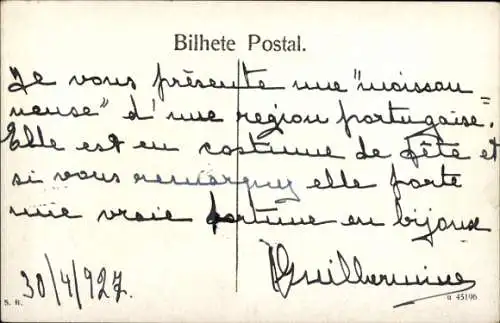 Bilhete Postal.
Je vous présente une "moisson=
neuse" d'une region portugaise.
Elle est en costume de fête et
si vous remarquez elle porte
une vraie fortune en bijoux
Guilhermine
30/4/927.
S. R.